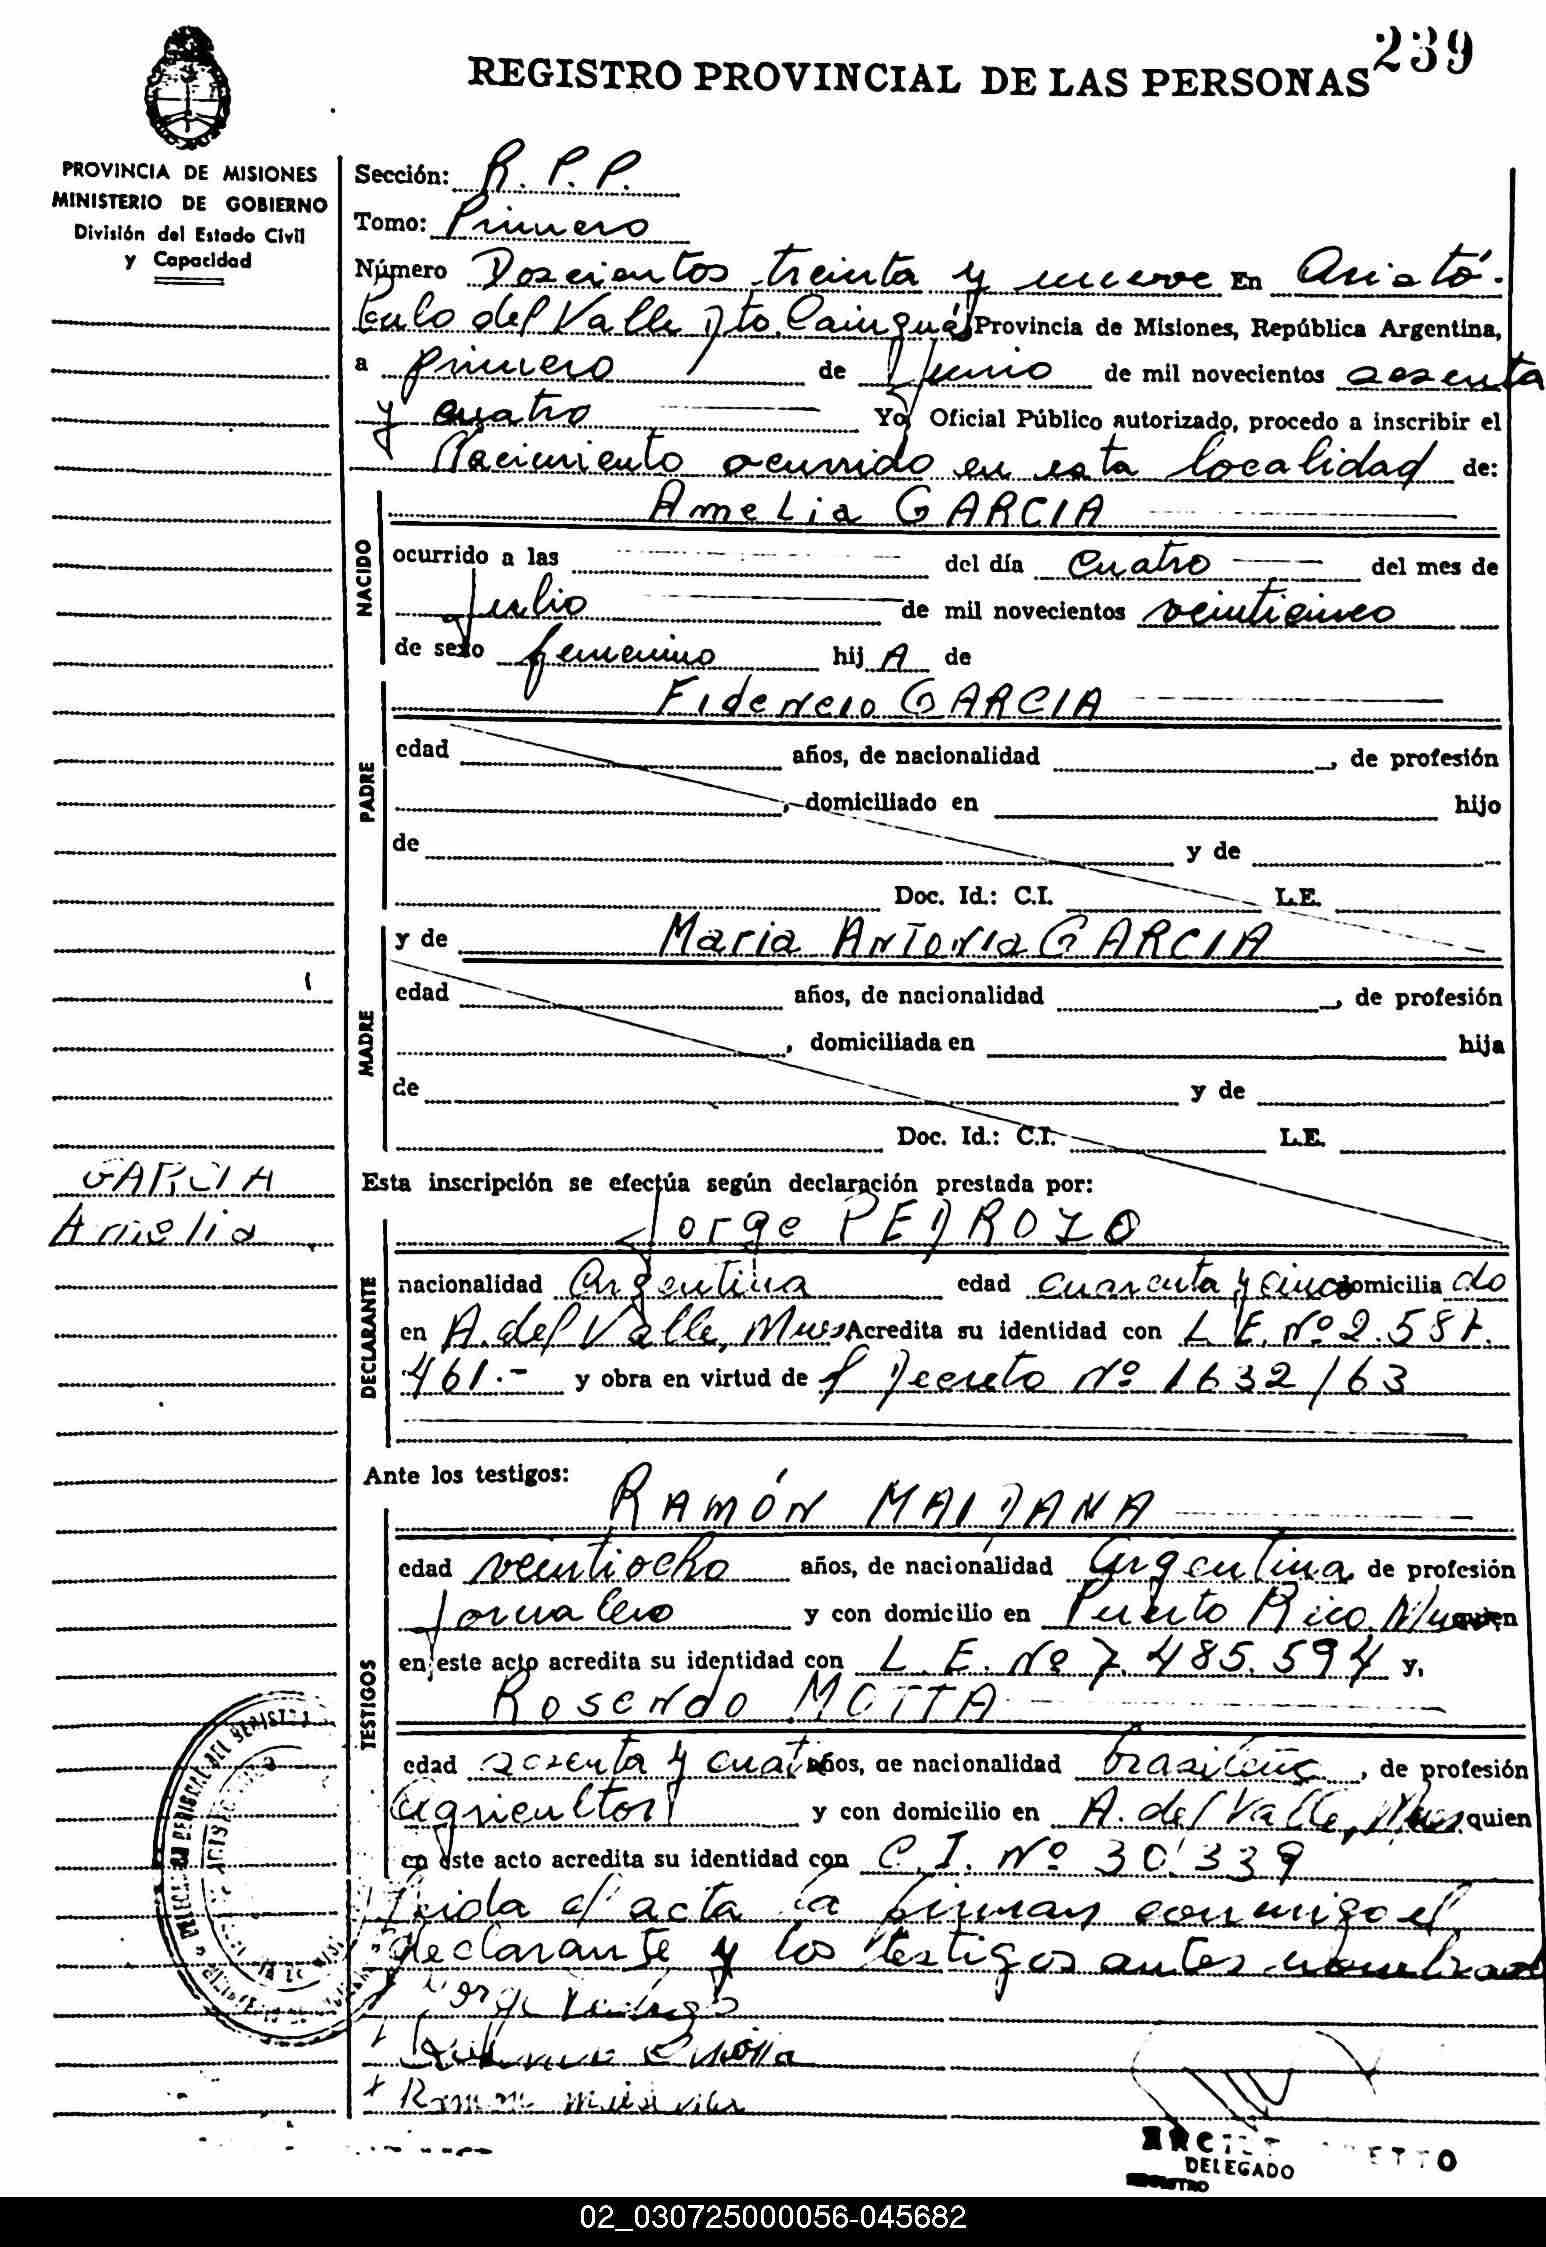 239
REGISTRO PROVINCIAL DE LAS PERSONAS
PROVINCIA DE MISIONES
MINISTERIO DE GOBIERNO
División del Estado Civil
y Capacidad
Sección: R. P. P.
Tomo: Primero
Número Doscientos treinta y nueve En Aristó-
bulo del Valle Dto. Cainguás Provincia de Misiones, República Argentina,
a primero de Junio de mil novecientos sesenta
y cuatro Yo, Oficial Público autorizado, procedo a inscribir el
Nacimiento ocurrido en esta localidad de:
NACIDO
Amelia GARCIA
ocurrido a las del día cuatro del mes de
Julio de mil novecientos veinticinco
de sexo femenino hij A de
PADRE
Fidencio GARCIA
edad años, de nacionalidad , de profesión
, domiciliado en hijo
de y de
Doc. Id.: C.I. L.E.
MADRE
y de Maria Antonia GARCIA
edad años, de nacionalidad , de profesión
, domiciliada en hija
de y de
Doc. Id.: C.I. L.E.
GARCIA
Amelia
Esta inscripción se efectúa según declaración prestada por:
DECLARANTE
Jorge PEDROZO
nacionalidad Argentina edad cuarenta y cinco domicilia do
en A. del Valle, Mnes Acredita su identidad con L. E. Nº 2.587.
461.- y obra en virtud de / Decreto Nº 1632/63
Ante los testigos:
TESTIGOS
RAMÓN MAIDANA
edad veintiocho años, de nacionalidad Argentina, de profesión
Jornalero y con domicilio en Puerto Rico, Mnes quien
en este acto acredita su identidad con L. E. Nº 7.485.594 y,
Rosendo MOTTA
edad sesenta y cuatro años, de nacionalidad brasileña, de profesión
Agricultor y con domicilio en A. del Valle, Mnes quien
en este acto acredita su identidad con C. I. Nº 30.339
Leida el acta la firman conmigo el
declarante y los testigos antes nombrados
DELEGADO
02_030725000056-045682